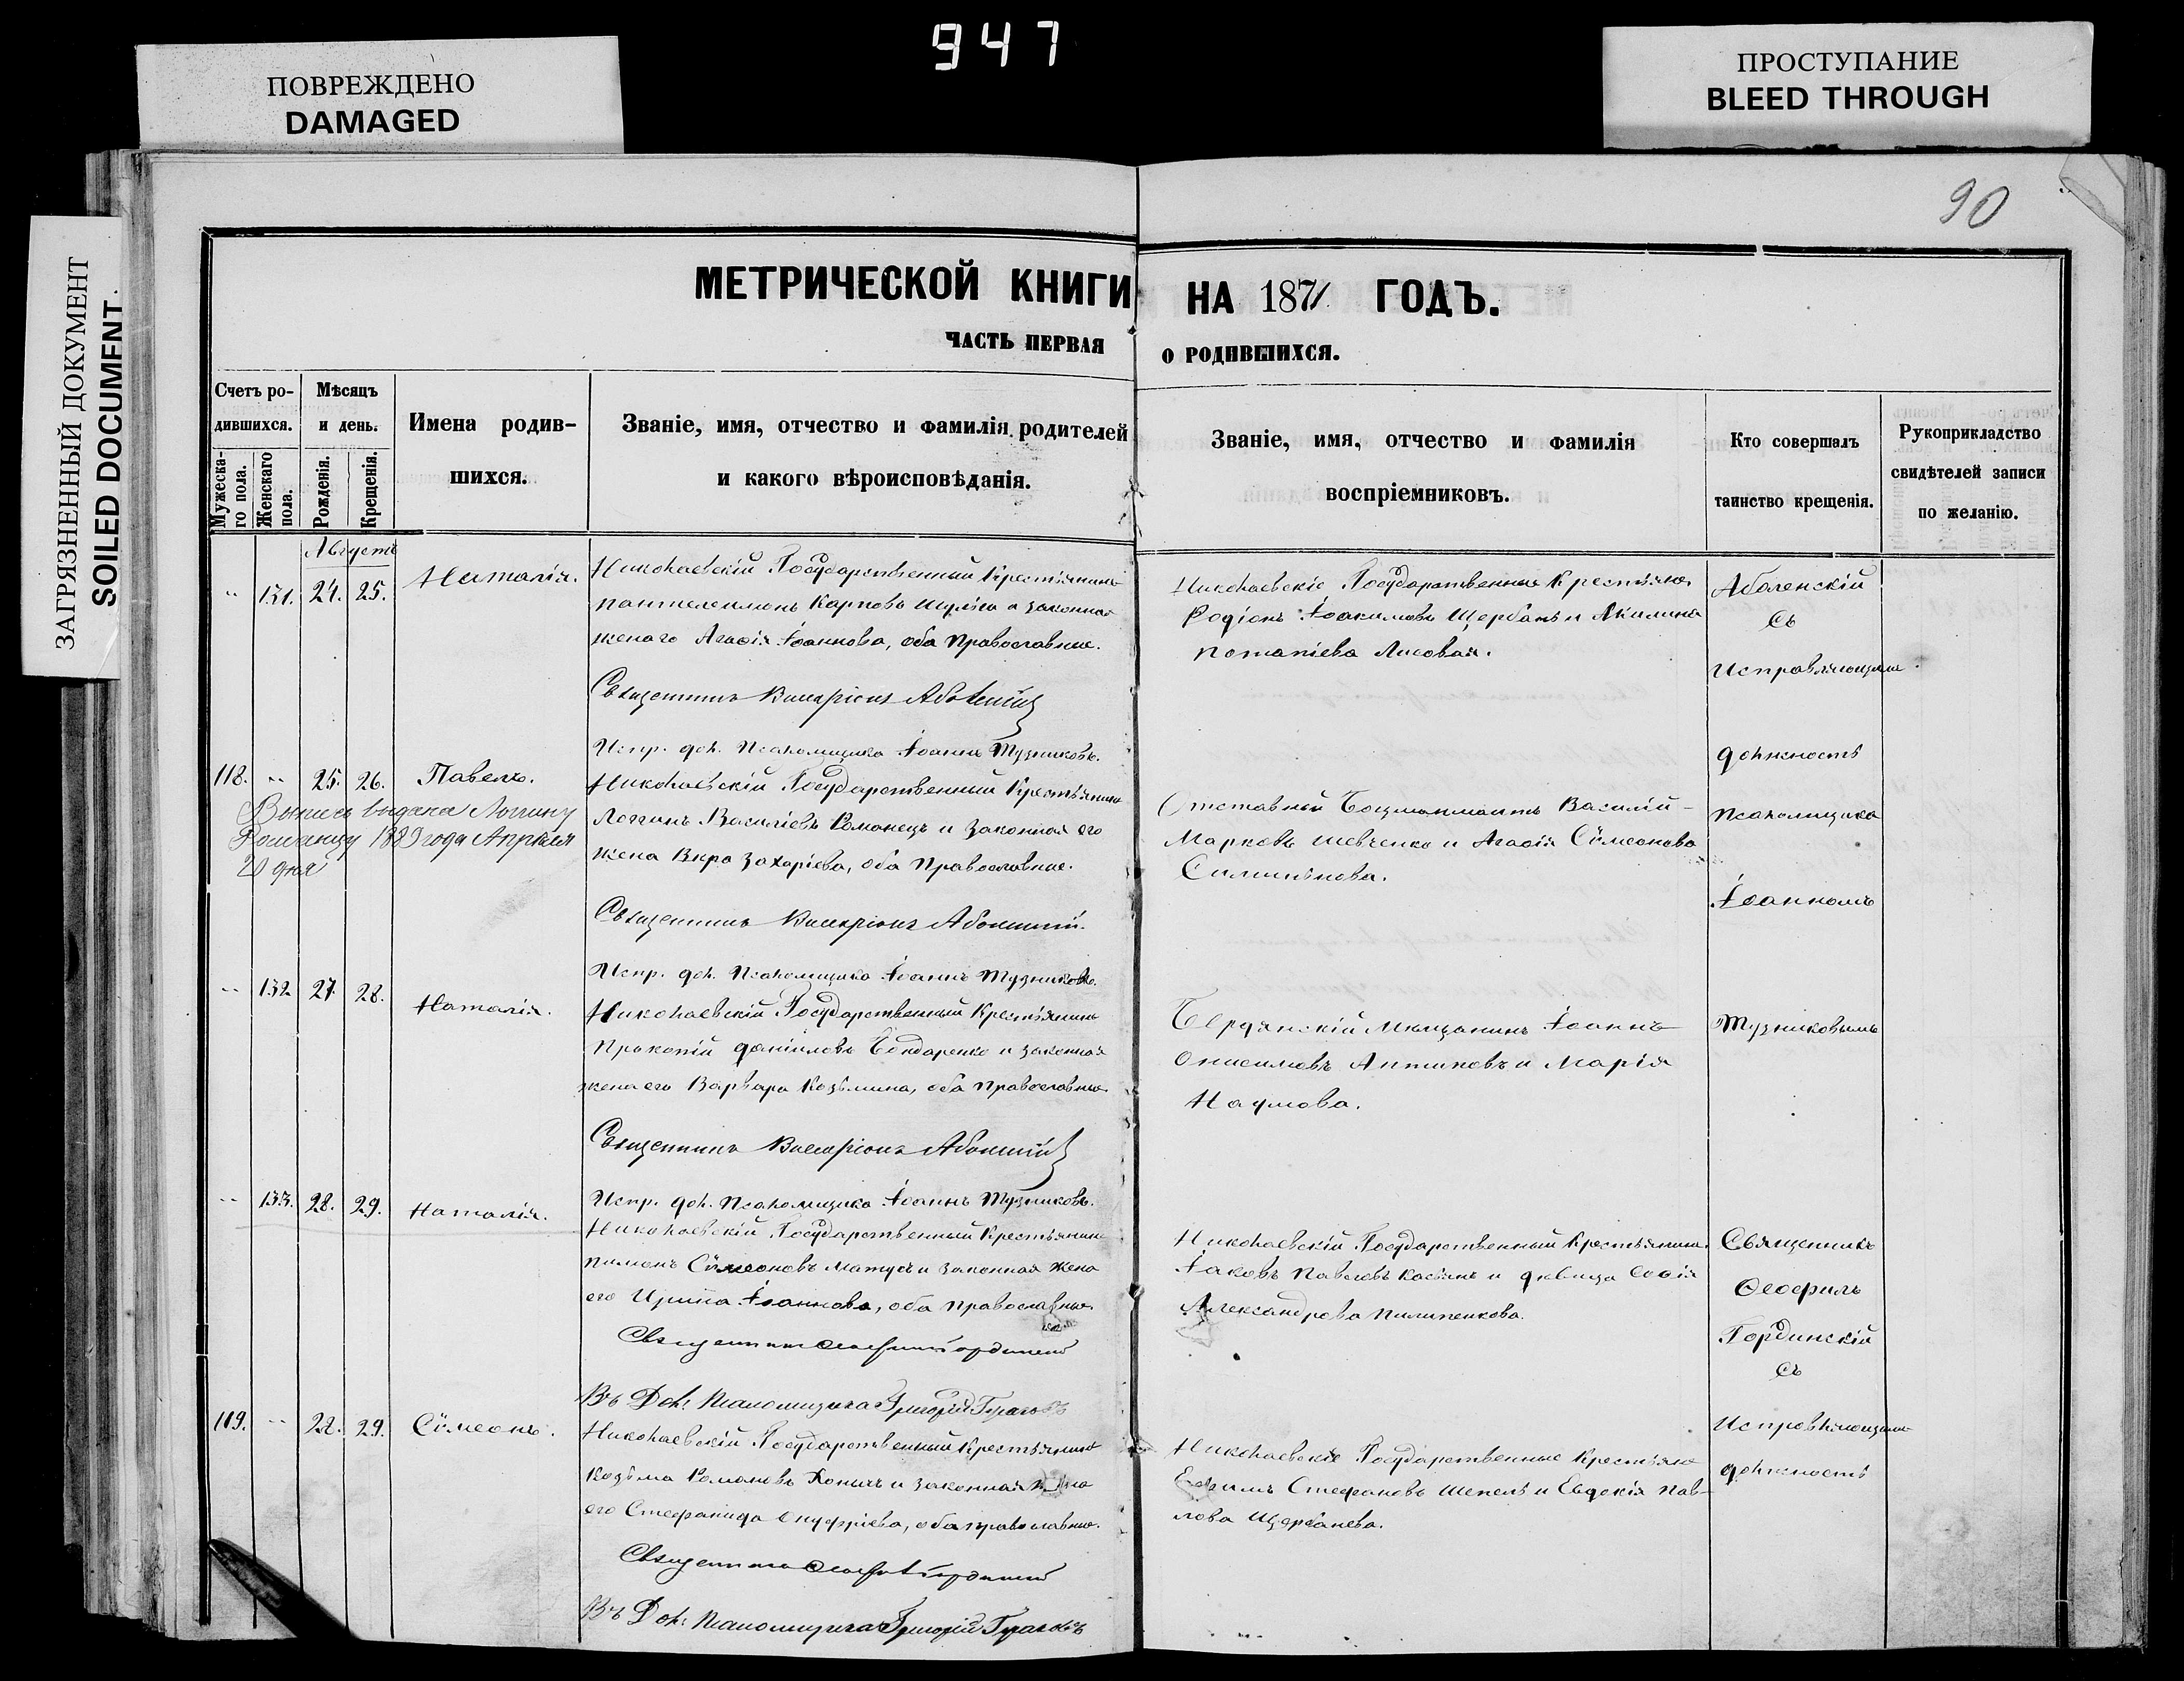 947
ПОВРЕЖДЕНО
DAMAGED
ПРОСТУПАНИЕ
BLEED THROUGH
ЗАГРЯЗНЕННЫЙ ДОКУМЕНТ
SOILED DOCUMENT
90
МЕТРИЧЕСКОЙ КНИГИ НА 1871 ГОДЪ.
ЧАСТЬ ПЕРВАЯ О РОДИВШИХСЯ.
Счетъ ро-
дившихся.
Мужеска-
го пола.
Женскаго
пола.
Мѣсяцъ
и день.
Рожденія.
Крещенія.
Имена родив-
шихся.
Званіе, имя, отчество и фамилія родителей
и какого вѣроисповѣданія.
Званіе, имя, отчество и фамилія
воспріемниковъ.
Кто совершалъ
таинство крещенія.
Рукоприкладство
свидѣтелей записи
по желанію.
Августъ
" 131. 24. 25. Наталія.
Николаевскій Государственный Крестьянинъ
Пантелеимонъ Карповъ и законная
жена его Агафія Іоаннова, оба Православные.
Священникъ Виссаріонъ Аболенскій
Испр. дол. Псаломщика Іоаннъ Тузниковъ.
Николаевскіе Государственные Крестьяне
Родіонъ Іоакимовъ Щербань и Акилина
Потапіева Лисовая.
Аболенскій
съ
Исправляющимъ
должность
Псаломщика
Іоанномъ
Тузниковымъ
118. " 25. 26. Павелъ.
Выпись выдана Логгину
Романцу 1889 года Апрѣля
20 дня
Николаевскій Государственный Крестьянинъ
Логгинъ Василіевъ Романецъ и законная его
жена Вѣра Захаріева, оба Православные.
Священникъ Виссаріонъ Аболенскій.
Испр. дол. Псаломщика Іоаннъ Тузниковъ.
Отставной Боцманматъ Василій
Марковъ Шевченко и Агафія Сѵмеонова
" 132 27. 28. Наталія.
Николаевскій Государственный Крестьянинъ
Прокопій Даніиловъ Бондаренко и законная
жена его Варвара Козьмина, оба Православные
Священникъ Виссаріонъ Аболенскій
Испр. дол. Псаломщика Іоаннъ Тузниковъ.
Бердянскій Мѣщанинъ Іоаннъ
Онисимовъ Антиповъ и Марія
Наумова.
" 133. 28. 29. Наталія.
Николаевскій Государственный Крестьянинъ
Пименъ Сѵмеоновъ и законная жена
его Ирина Іоаннова, оба православные
Священникъ Ѳеофилъ Гординскій
Въ Дол: Псаломщика Григорій
Николаевскій Государственный Крестьянинъ
Іаковъ Павловъ Касьянъ и дѣвица Софія
Александрова Пилипенкова.
Священникъ
Ѳеофилъ
Гординскій
съ
Исправляющимъ
должность
119. " 28. 29. Сѵмеонъ.
Николаевскій Государственный Крестьянинъ
Козьма Романовъ и законная жена
его Стефанида Онуфріева, оба православные.
Священникъ Ѳеофилъ Гординскій
Въ Дол: Псаломщика Григорій
Николаевскіе Государственные Крестьяне
Ефимъ Стефановъ Шепель и Евдокія Пав-
лова Щербанева.